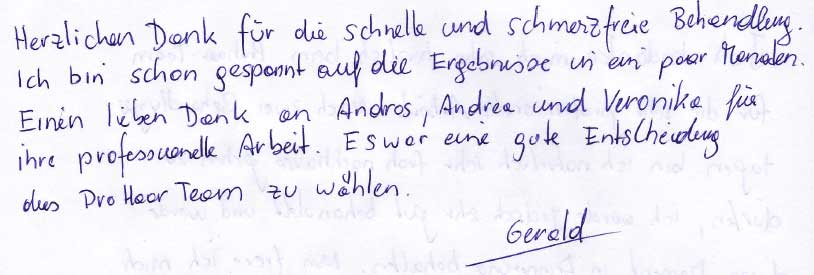 Herzlichen Dank für die schnelle und schmerzfreie Behandlung.
Ich bin schon gespannt auf die Ergebnisse in ein paar Monaten.
Einen lieben Dank an Andros, Andrea und Veronika für
ihre professionelle Arbeit. Es war eine gute Entscheidung
das ProHaar Team zu wählen.
Gerald